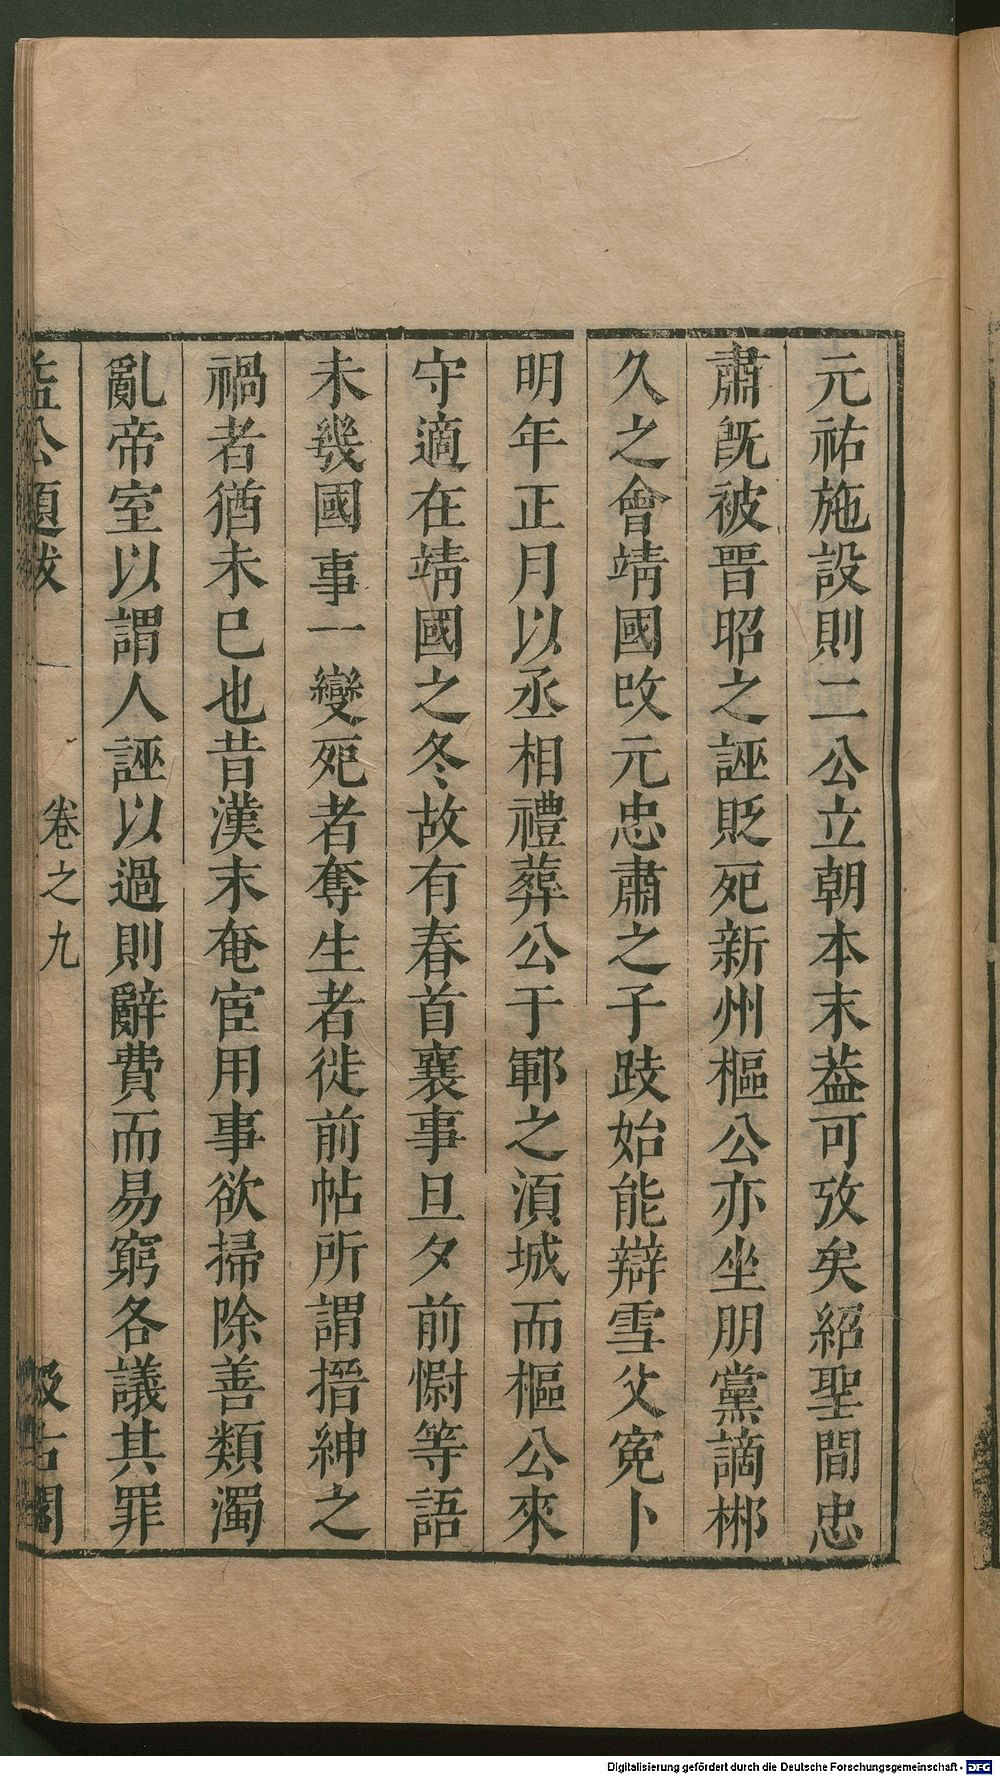 元祐施設則二公立朝本末葢可攷矣紹聖間忠
肅旣被晋昭之誣貶死新州樞公亦坐朋黨謫郴
久之會靖國改元忠肅之子跂始能辯雪父寃卜
明年正月以丞相禮葬公于鄆之湏城而樞公來
守適在靖國之冬故有春首襄事旦夕前慰等語
未幾國事一變死者奪生者徙前帖所謂搢紳之
禍者猶未巳也昔漢末奄宦用事欲掃除善類濁
亂帝室以謂人誣以過則辭費而易窮各議其罪
益公題跋
卷之九
汲古閣
Digitalisierung gefördert durch die Deutsche Forschungsgemeinschaft - DFG